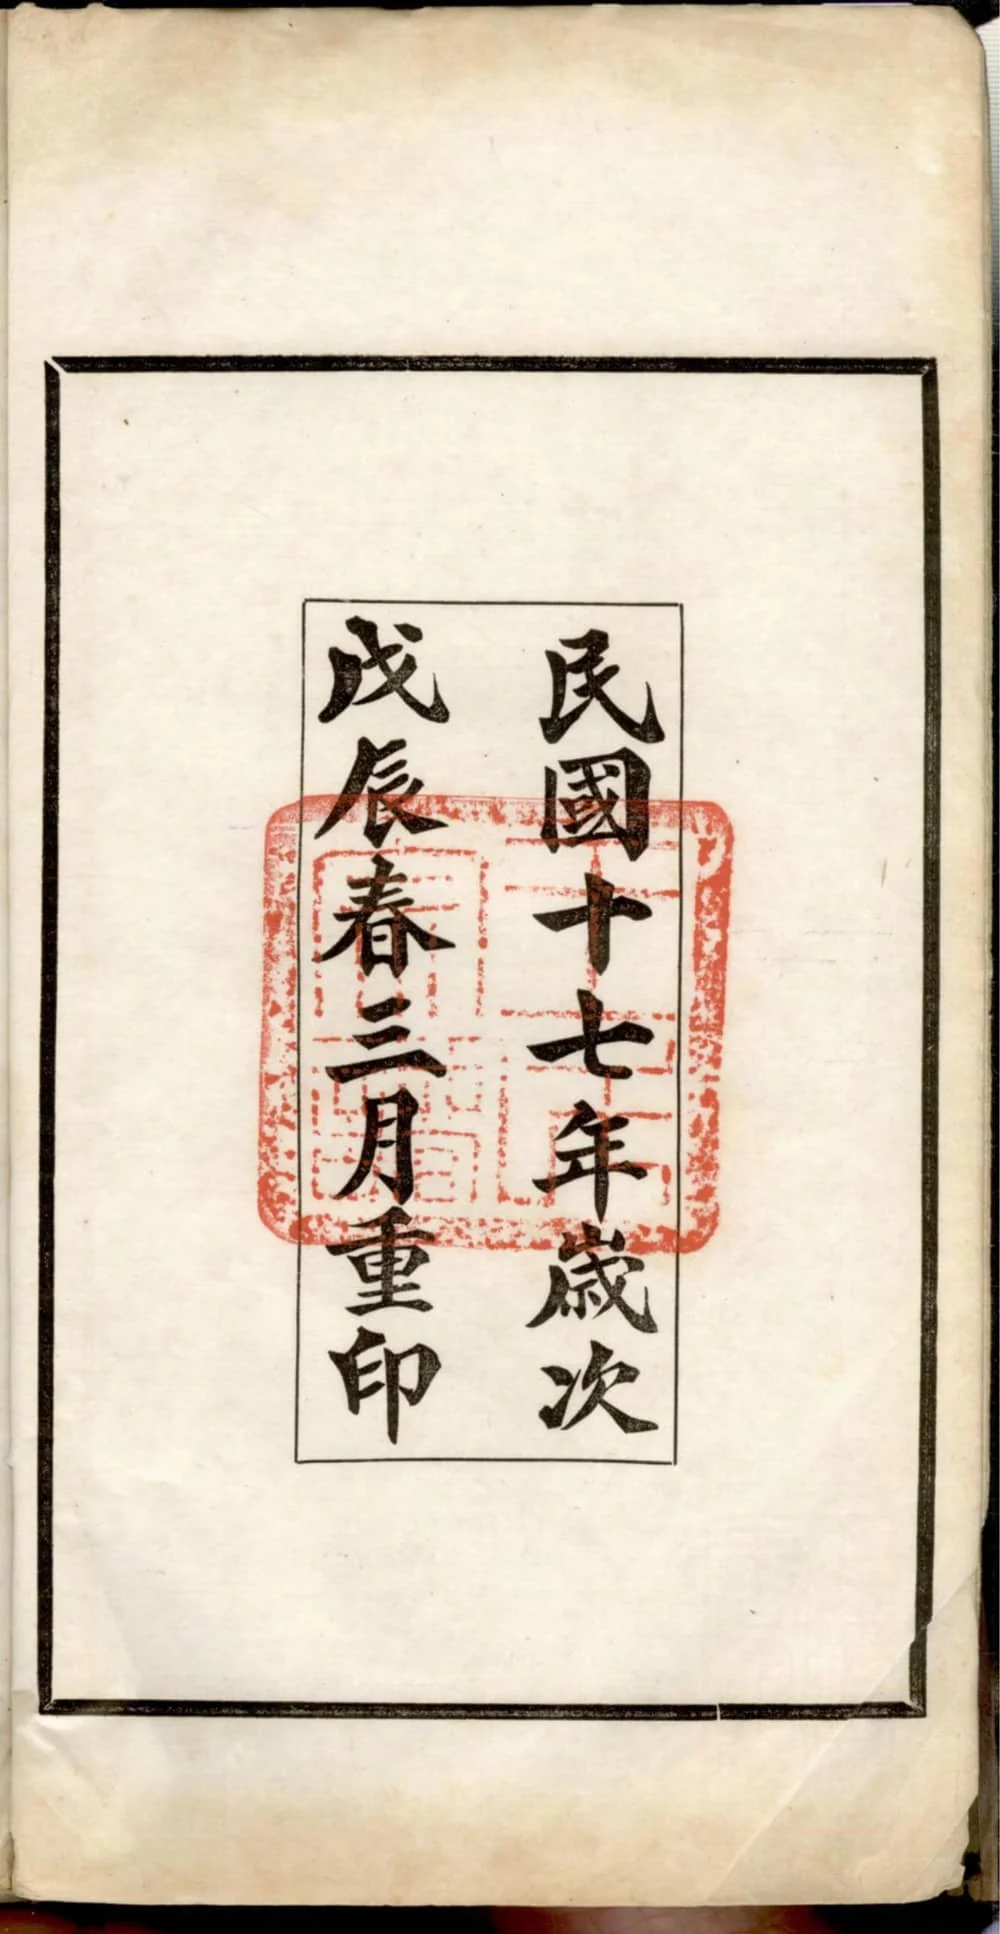 民國十七年歲次
戊辰春三月重印